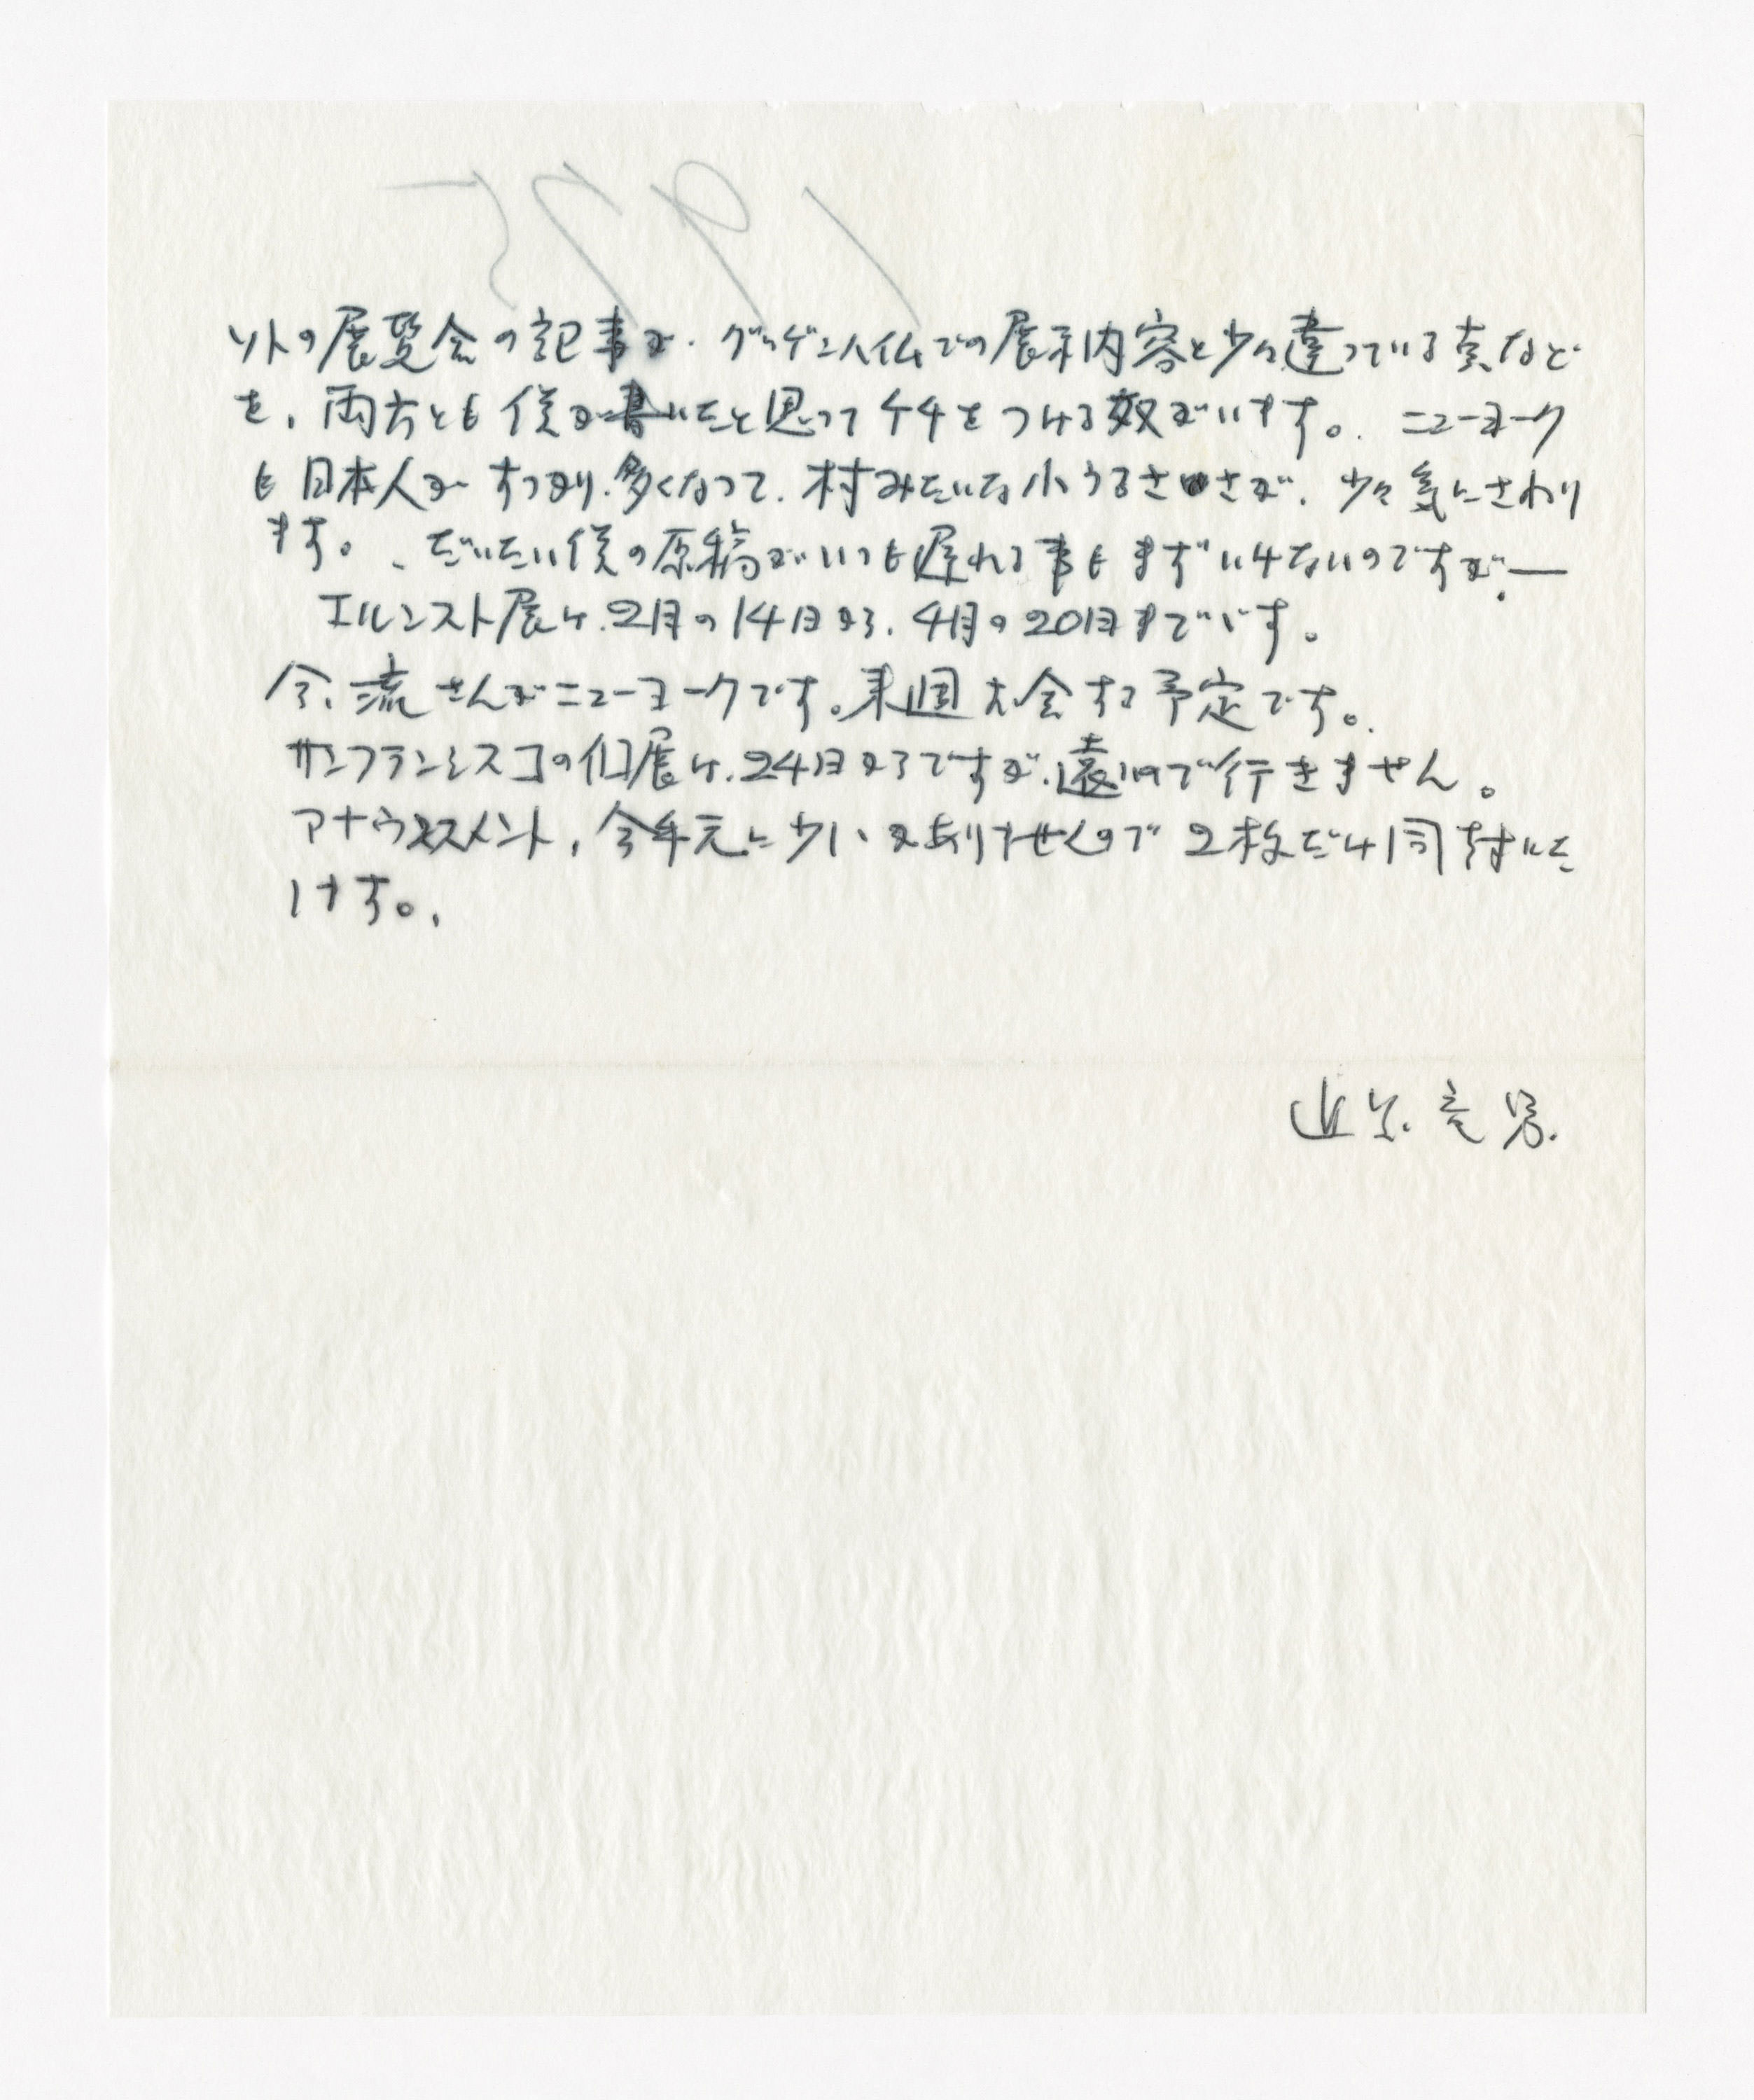 1975
ソトの展覧会の記事が、グッゲンハイムでの展示内容と少々違っている点など
を、両方とも僕が書いたと思ってケチをつける奴がいます。ニューヨーク
も日本人が すっかり多くなって、村みたいな小うるささが、少々気にさわり
ます。だいたい僕の原稿がいつも遅れる事もまずいけないのですが、—
エルンスト展は、2月の14日から、4月の20日までです。
今、流さんがニューヨークです。来週 お会する予定です。
サンフランシスコの個展は、24日からですが、遠いので行きません。
アナウンスメント、今手元に少ししかありませんので 2枚だけ同封いた
します。
近藤竜男